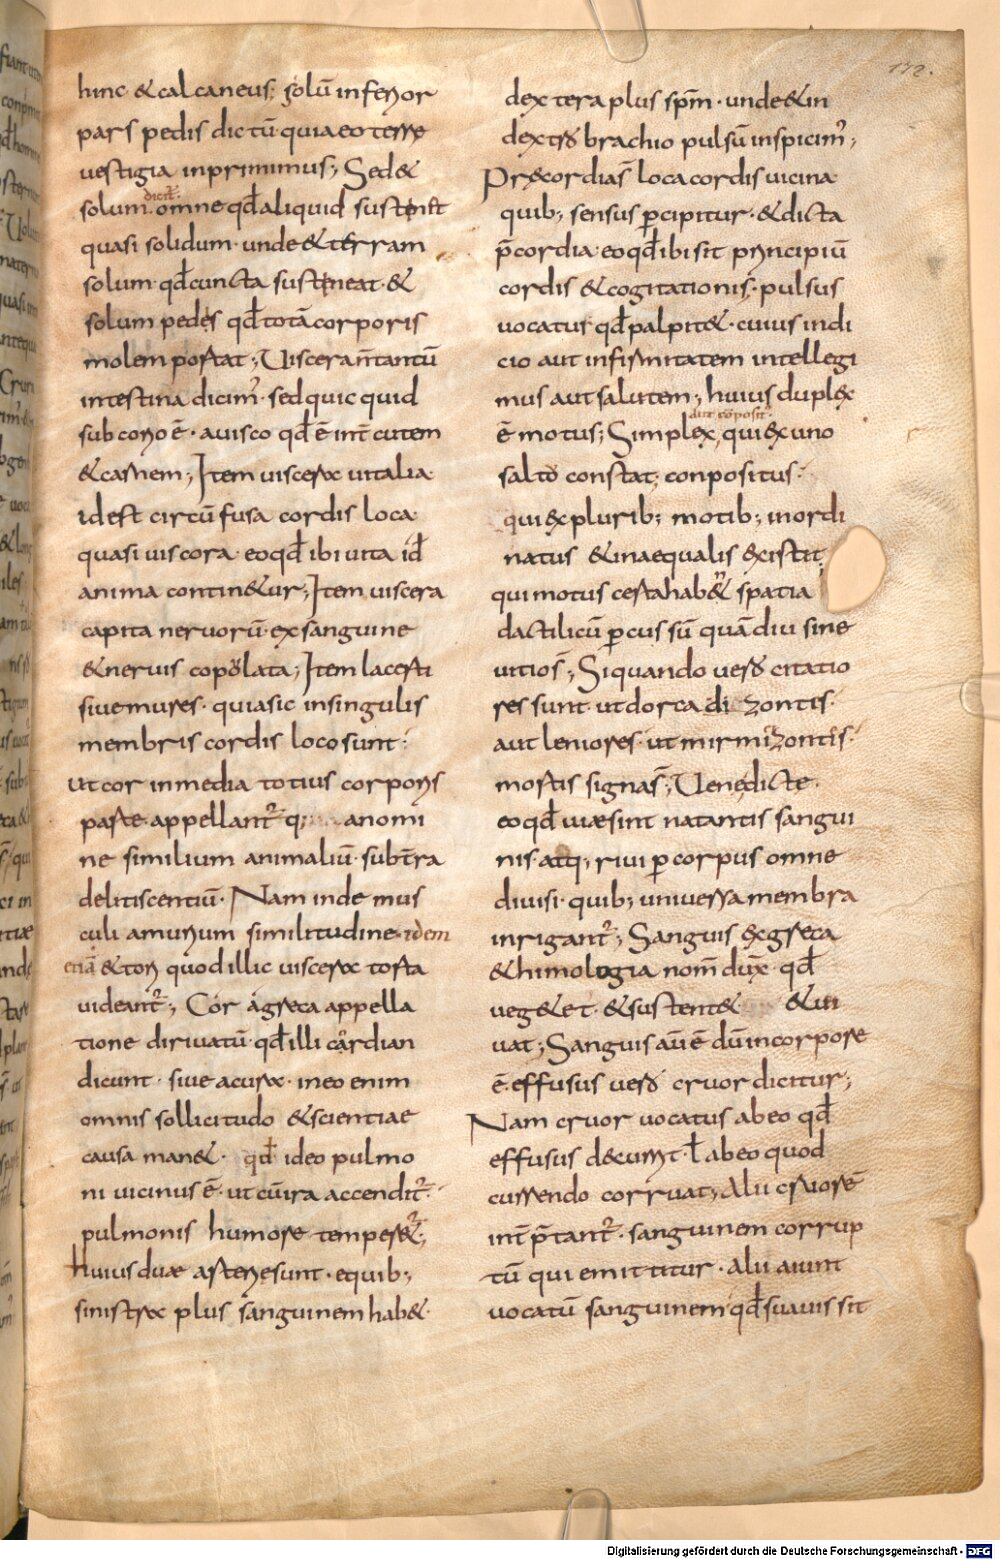 172.
hinc & calcaneus; solū inferior
pars pedis dictū quia eo terre
vestigia inprimimus; Sed &
dicit̄
solum omne qđ aliquid sustinet
quasi solidum· unde & terram
solum qđ cuncta sustineat &
solum pedes qđ totā corporis
molem portat; Uiscera n̄ tantū
intestina dicim̉ sed quic quid
sub corio ē· a uisco qđ ē int̄ cutem
& carnem; Item viscera vitalia
id est circū fusa cordis loca
quasi uiscora eo qđ ibi uita id̄
anima contin&ur; Item viscera
capita neruorū ex sanguine
& neruis copolata; Item lacerti
siue mures· quia sic in singulis
membris cordis loco sunt·
ut cor in media totius corporis
parte appellant̉ q; a nomi
ne similium animaliū· subt̄ra
delitiscentiū· Nam inde mus
culi a murium similitudine· idem
etiā & tori quod illic viscera torta
videant̉; Cor a greca appella
tione dirivatū· qđ illi cardian
dicunt· siue a cura· in eo enim
omnis sollicitudo & scientiae
causa man&· qđ ideo pulmo
ni uicinus ē· ut cū ira accendit̉·
pulmonis humore temper&̉;
huius duæ arterie sunt· e quib;
sinistra plus sanguinem hab&·
dextera plus sp̄m· unde & in
dextro brachio pulsū inspicim̉;
Precordia s̄ loca cordis uicina
quib; sensus p̄cipitur· & dicta
p̄cordia· eo qđ ibi sit principiū
cordis & cogitationis· pulsus
uocatus qđ palpit&· cuius indi
cio aut infirmitatem intellegi
mus aut salutem; huius duplex
aut cōposit̉
ē motus; Simplex, qui ex uno
salto constat; conpositus·
qui ex plurib; motib; inordi
natus & inaequalis existit,
qui motus certa hab&̄ spatia
dactilicū p̄cussū quādiu sine
uitio s̄; Si quando uero citatio
res sunt· ut dorca di zontis·
aut leniores· ut mirmizontis·
mortis signa s̄; Uene dicte
eo qđ uiæ sint natantis sangui
nis· atq; riui p̄ corpus omne
divisi· quib; uniuersa membra
inrigant̉; Sanguis ex greca
&himologia nom̄ dux̄· qđ
veg&et· & sustent& & ui
uat; Sanguis aū ē dū in corpore
ē· effusus uero cruor dicitur;
Nam cruor uocatus ab eo qđ
effusus decurrit· ł ab eo quod
currendo corruat; Alii cruorē
int̄p̄tant̉· sanguinem corrup
tū qui emittitur· alii aiunt
uocatū sanguinem qđ suauis sit
Digitalisierung gefördert durch die Deutsche Forschungsgemeinschaft - DFG